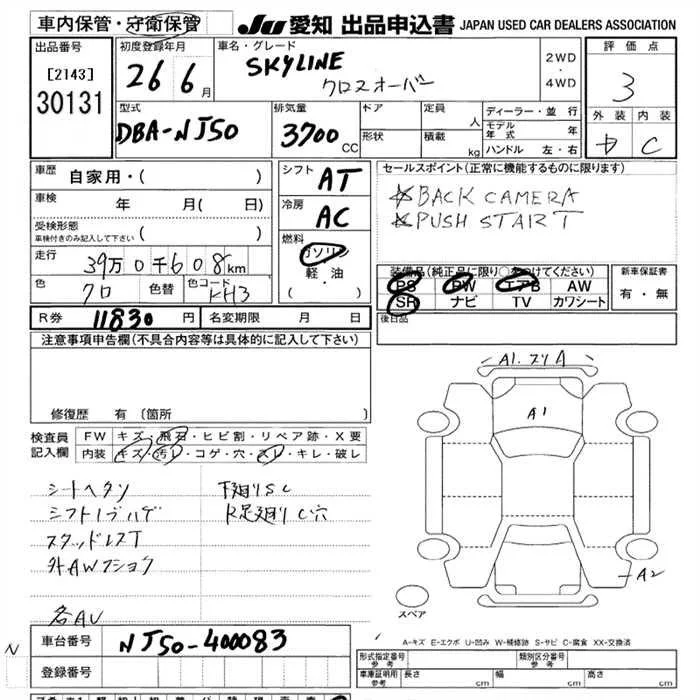 車内保管・守衛保管
JU 愛知 出品申込書 JAPAN USED CAR DEALERS ASSOCIATION
出品番号
[2143]
30131
初度登録年月
26 6月
車名・グレード
SKYLINE
クロスオーバー
2WD
・
4WD
評価点
3
外装 内装
C
型式
DBA-NJ50
排気量
3700 CC
ドア
形状
定員 人
積載 kg
ディーラー・並行
モデル年式 年
ハンドル 左・右
車歴 自家用・( )
車検 年 月( 日)
受検形態
車検付きのみ記入して下さい ( )
走行 39万0千608km
色 クロ 色替 色コード KH3
シフト AT
冷房 AC
燃料
ガソリン
軽・油
・( )
セールスポイント(正常に機能するものに限ります)
BACK CAMERA
PUSH START
装備品(純正品に限り○をつけてください)
PS PW エアB AW
SR ナビ TV カワシート
新車保証書
有・無
後日品
R券 11830 円 名変期限 月 日
注意事項申告欄(不具合内容等は具体的に記入して下さい)
修復歴 有〔箇所 〕
検査員
記入欄
FW キズ・飛石・ヒビ割・リペア跡・X要
内装 キズ・汚レ・コゲ・穴・スレ・キレ・破レ
シートヘタリ
シフトノブハゲ
スタッドレスT
外AWフショク
各AU
下廻りSC
R足廻りC穴
A1.スリA
A1
A2
スペア
A-キズ E-エクボ U-凹み W-補修跡 S-サビ C-腐食 XX-交換済
N
車台番号 NJ50-400083
登録番号
形式指定番号
参考
類別区分番号
参考
車庫証明用
参考
長さ cm 幅 cm 高さ cm